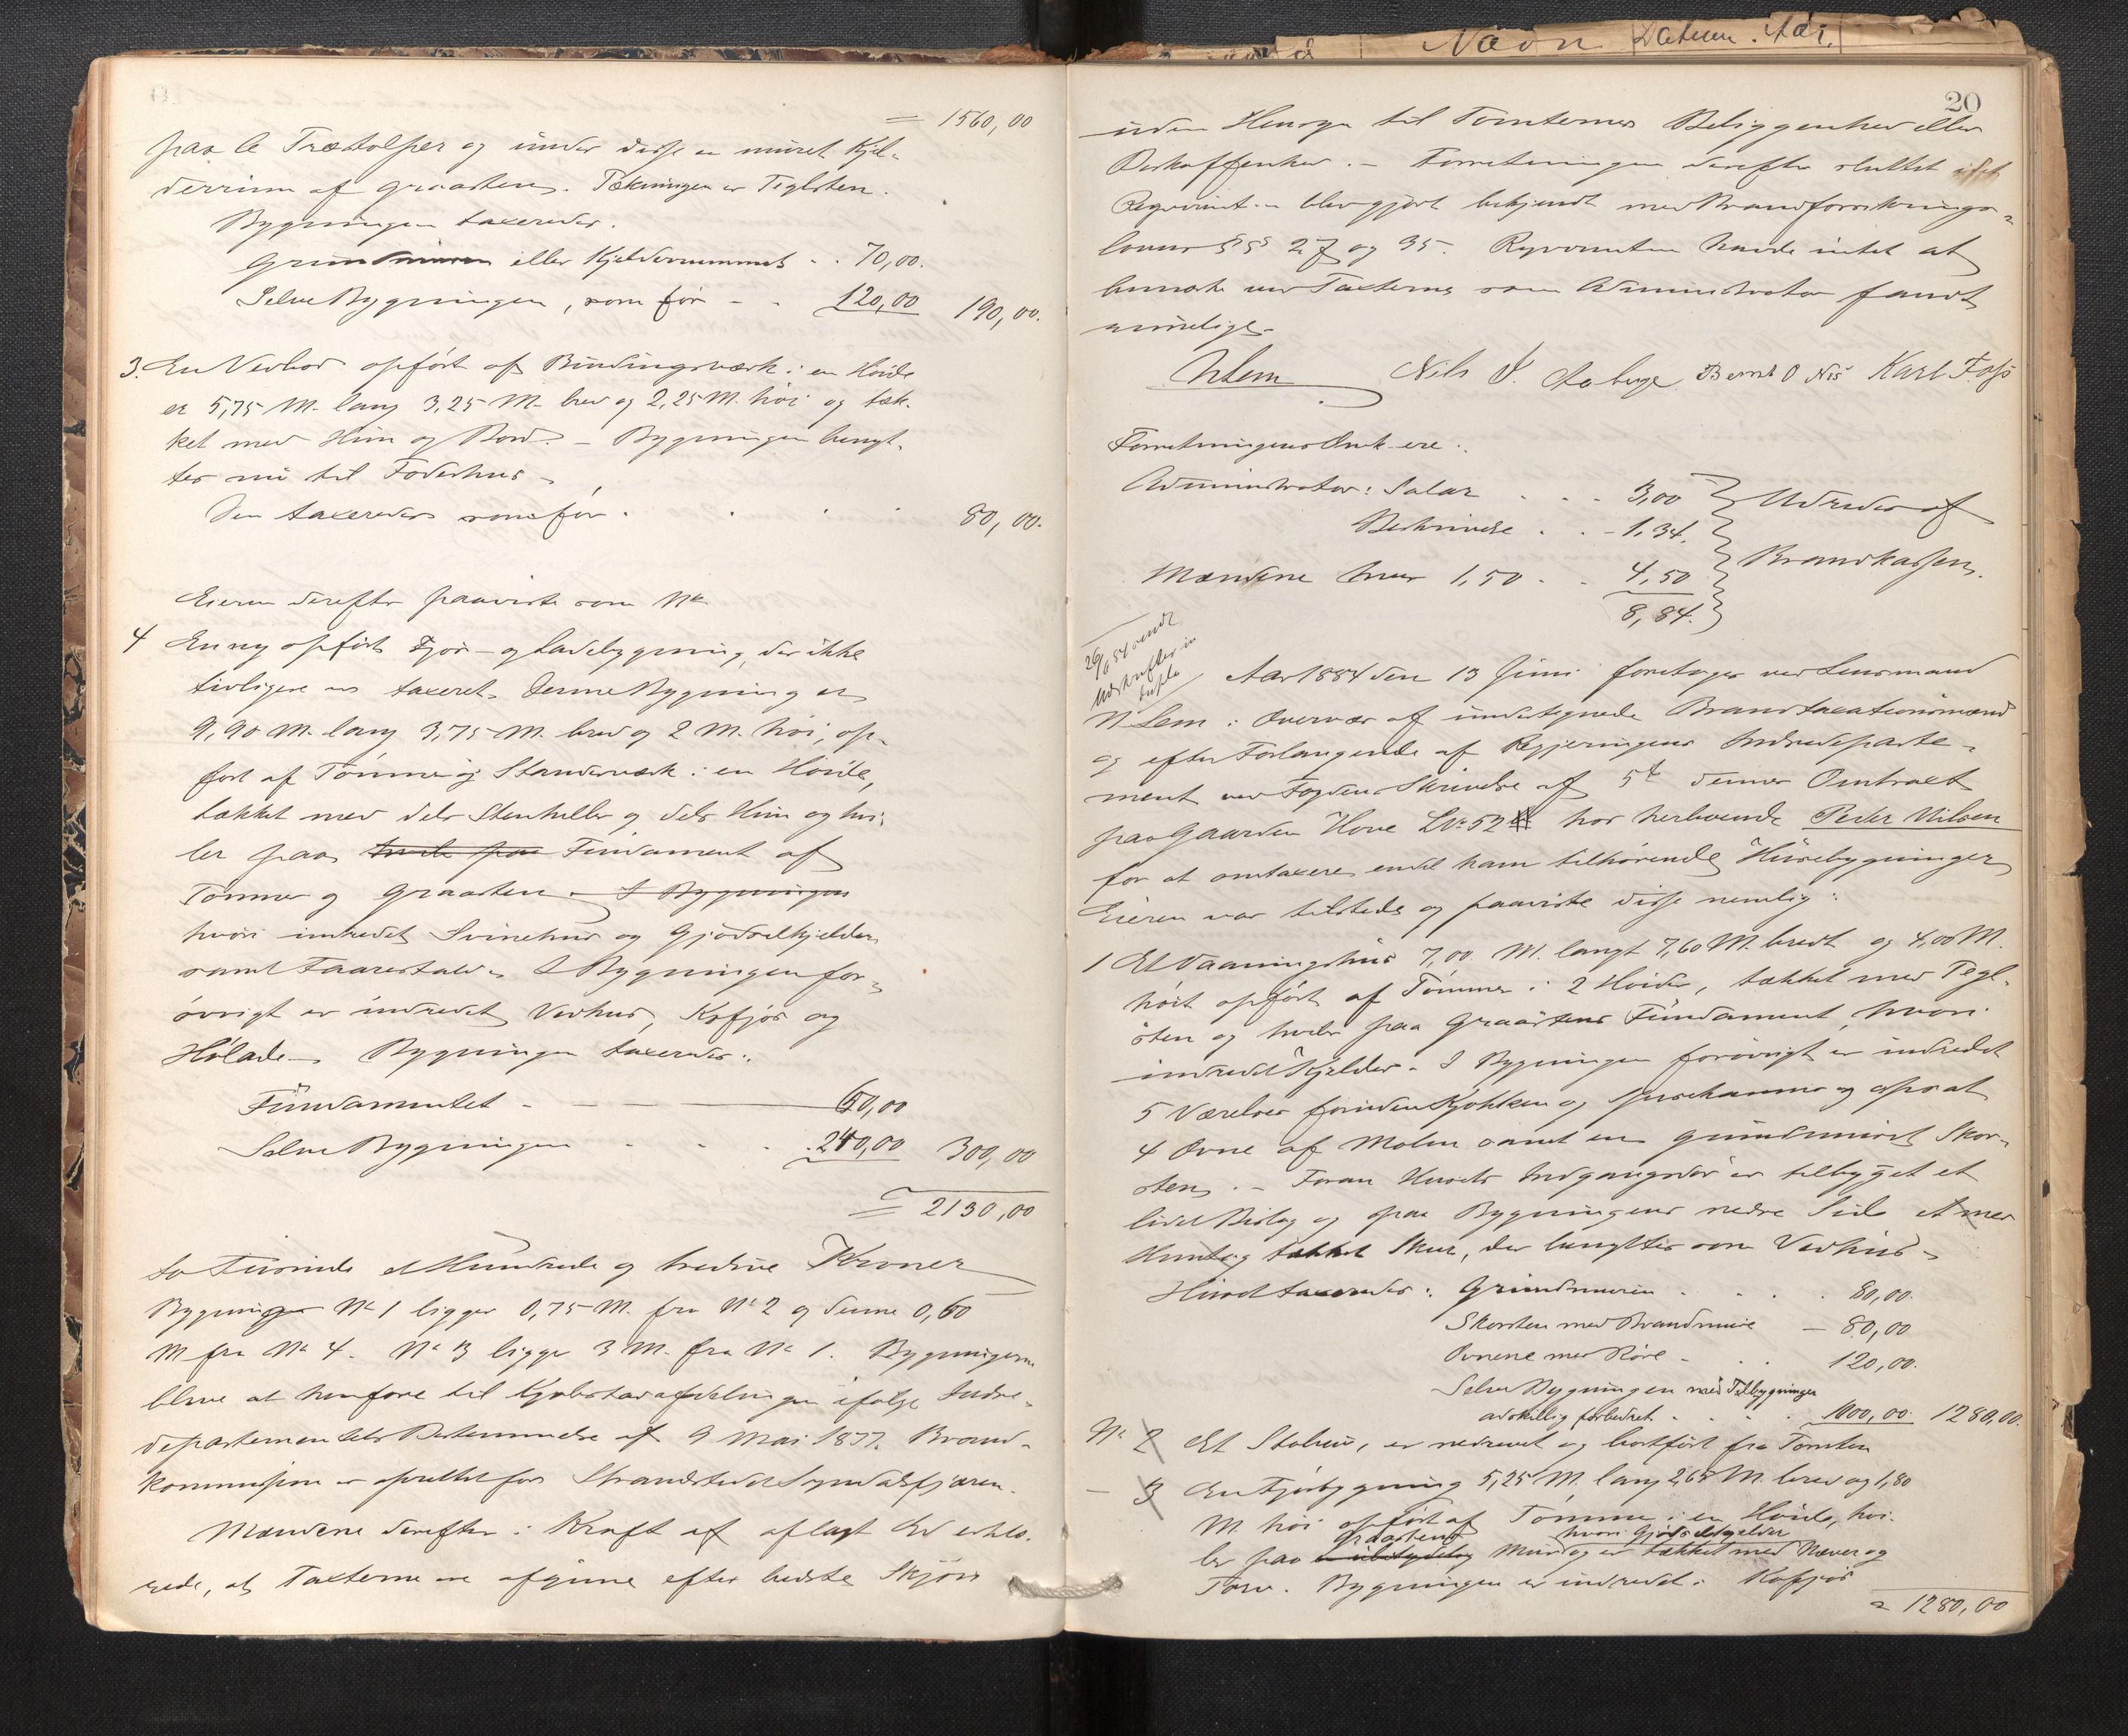 = 1560,00
paa 6 Træstolper og under disse er muret Kjel-
derrum af graasten. Tækningen er Teglsten.
Bygningen taxeredes.
Grundmuren eller Kjelderrummet . . 70,00.
Selve Bygningen, som før - - 120,00 190,00.
3. En Vedbod opført af Bindingsværk i en Høide
er 5,75 M. lang 3,25 M. bred og 2,25 M. høi og tæk-
ket med Hun og Bord. - Bygningen benyt-
tes nu til Foderhus -
Den taxeredes som før . . . . 80,00.
Eieren derefter paaviste som No
4 En ny opført Fjøs- og Ladebygning, der ikke
tidligere er taxeret. Denne Bygning er
9,90 M. lang 3,75 M. bred og 2 M. høi, op-
ført af Tømmer og Standerværk i en Høide,
tækket med dels Stenheller og dels Hun og hvi-
ler paa hvile paa Fundament af
Tømmer og Graasten. I Bygningen
hvori indredet Svinehus og Gjødselkjelder
samt Faarestald. I Bygningen for-
øvrigt er indredet Vedhus, Kofjøs og
Hølade. Bygningen taxeredes:
Fundamentet - - 60,00
Selve Bygningen . . . 240,00 300,00
= 2130,00
to Tusinde et Hundrede og tredive Kroner
Bygningen No 1 ligger 0,75 M. fra No 2 og denne 0,60
M fra No 4. No 3 ligger 3 M. fra No 1. Bygningerne
bleve at henføre til Kjøbstadafdelingen ifølge Indre-
departementets Bestemmelse af 9 Mai 1877. Brand-
kommission er oprettet for Strandstedet Sogndalsfjæren.
Mændene derefter i Kraft af aflagt Ed erklæ-
rede, at Taxterne ere afgivne efter bedste Skjøn
Navn Datum. Aar.
20
uden Hensyn til Tomternes Beliggenhed eller
Beskaffenhed. - Forretningen derefter sluttet idet
Rekvirent.. blev gjort bekjendt med Brandforsikrings-
lovens §§ 27 og 35. Rekvirenten havde intet at
bemærke ved Taxterne som Administrator fandt
rimelige.
NLem Nils J. Aaberge Bernt O Nes Karl Foss
Forretningens Omk. ere:
Administrator: Salær . . . 3,00 Udredes af
Beskrivelse . . - 1,34.
Mændene hver 1,50 . . 4,50 Brandkassen.
8,84.
26/6 84 sendt
Udskrifter in
duplo
Aar 1884 den 13 Juni foretoges ved Lensmand
N Lem i Overvær af undertegnede Brandtaxationsmænd
og efter Forlangende af Regjeringens Indredeparte-
ment ved Fogdens Skrivelse af 5te dennes Omtaxt
paa Gaarden Hove LNo 52 hos herboende Peder Nilsen
for at omtaxere endel ham tilhørende Husebygninger
Eieren var tilstede og paaviste disse nemlig:
1 Et Vaaningshus 7,00 M. langt 7,60 M. bredt og 4,00 M.
høit opført af Tømmer i 2 Høider, tækket med Tegl-
sten og hviler paa Graastens Fundament, hvori
indredet Kjelder. I Bygningen forøvrigt er indredet
5 Værelser foruden Kjøkken og Spisekammer og opsat
4 Ovne af Malm samt en grundmuret Skor-
sten. - Foran Husets Indgangsdør er tilbygget et
lidet Bislag og paa Bygningens nedre Side et med
Hun tækket Skur, der benyttes som Vedhus -
Huset taxeredes: Grundmuren . . . . 80,00.
Skorsten med Brandmure - 80,00
Ovnene med Rør - . . 120,00.
Selve Bygningen med Tilbygninger
adskillig forbedret . . . . 1000,00. 1280,00.
No 2 Et Stabur, er nedrevet og bortført fra Tomten
- 3 En Fjøsbygning 5,25 M. lang 2,65 M. bred og 1,80
M. høi opført af Tømmer i en Høide, hvi-
graastens hvori Gjødselkjelder
ler paa Mur og er tækket med Næver og
Torv. Bygningen er indredet i Kofjøs
= 1280,00